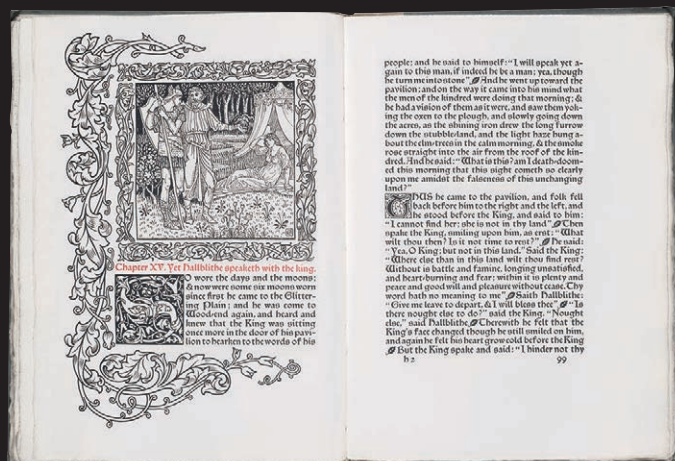 Chapter XV. Yet Hallblithe speaketh with the king.
SO wore the days and the moons;
& now were some six moons worn
since first he came to the Glitter-
ing Plain; and he was come to
Wood-end again, and heard and
knew that the King was sitting
once more in the door of his pavi-
lion to hearken to the words of his
people; and he said to himself: "I will speak yet a-
gain to this man, if indeed he be a man; yea, though
he turn me into stone." And he went up toward the
pavilion; and on the way it came into his mind what
the men of the kindred were doing that morning; &
he had a vision of them as it were, and saw them yok-
ing the oxen to the plough, and slowly going down
the acres, as the shining iron drew the long furrow
down the stubble-land, and the light haze hung a-
bout the elm-trees in the calm morning, & the smoke
rose straight into the air from the roof of the kin-
dred. And he said: "What is this? am I death-doom-
ed this morning that this sight cometh so clearly
upon me amidst the falseness of this unchanging
land?"
THUS he came to the pavilion, and folk fell
back before him to the right and the left, and
he stood before the King, and said to him:
"I cannot find her; she is not in thy land." Then
spake the King, smiling upon him, as erst: "What
wilt thou then? Is it not time to rest?" He said:
"Yea, O King; but not in this land." Said the King:
"Where else than in this land wilt thou find rest?
Without is battle and famine, longing unsatisfied,
and heart-burning and fear; within it is plenty and
peace and good will and pleasure without cease. Thy
word hath no meaning to me." Saith Hallblithe:
"Give me leave to depart, & I will bless thee." "Is
there nought else to do?" said the King. "Nought
else," said Hallblithe. Therewith he felt that the
King's face changed though he still smiled on him,
and again he felt his heart grow cold before the King
But the King spake and said: "I hinder not thy
h2 99